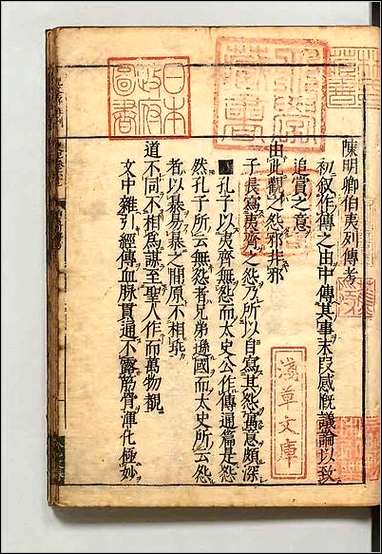 陳明卿伯夷列傳考
初叙作傳之由中傳其事末段感慨議論以致
追賞之意
由此觀之怨邪非邪
子長寫夷齊之怨乃所以自寫其怨寓意頗深
孔子以夷齊無怨而太史公作傳通篇是怨
然孔子所云無怨者兄弟遜國而太史所云怨
者以暴易暴之間原不相戾
道不同不相爲謀至聖人作而萬物覩
文中雜引經傳血脉貫通不露筋骨渾化極妙
日本
政府
圖書
淺草文庫